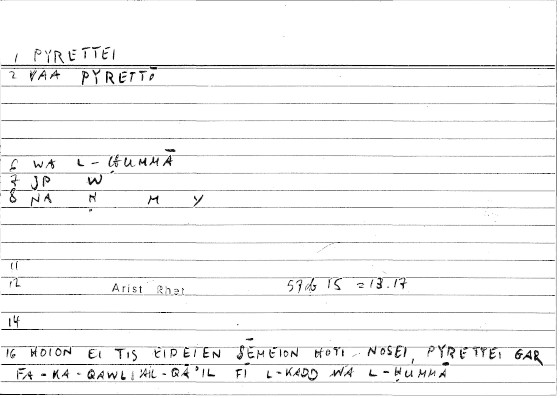 1 PYRETTEI
2 VAA PYRETTŌ
6 WA L-ḤUMMĀ
7 JP W
8 NA Ḥ M Y
11
12 Arist Rhet 57b 15 = 13.17
14
16 HOION EI TIS EIDEIEN SĒMEION HOTI NOSEI, PYRETTEI GAR
FA-KA-QAWLI 'AL-QĀ'IL FĪ L-KADD WA L-ḤUMMĀ